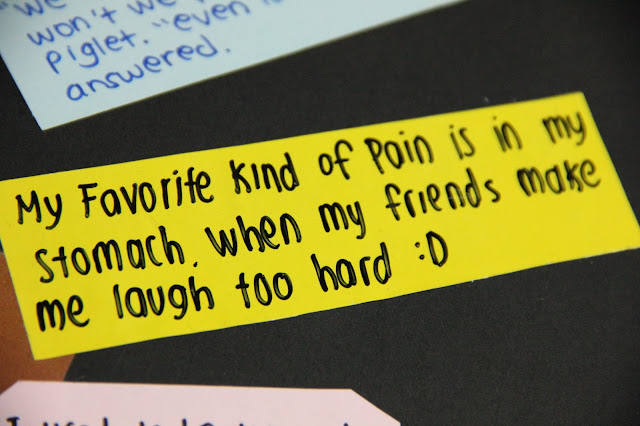 "we
won't we
Piglet. "even
answered.
My Favorite Kind of Pain is in my
Stomach. When my friends make
me laugh too hard :D